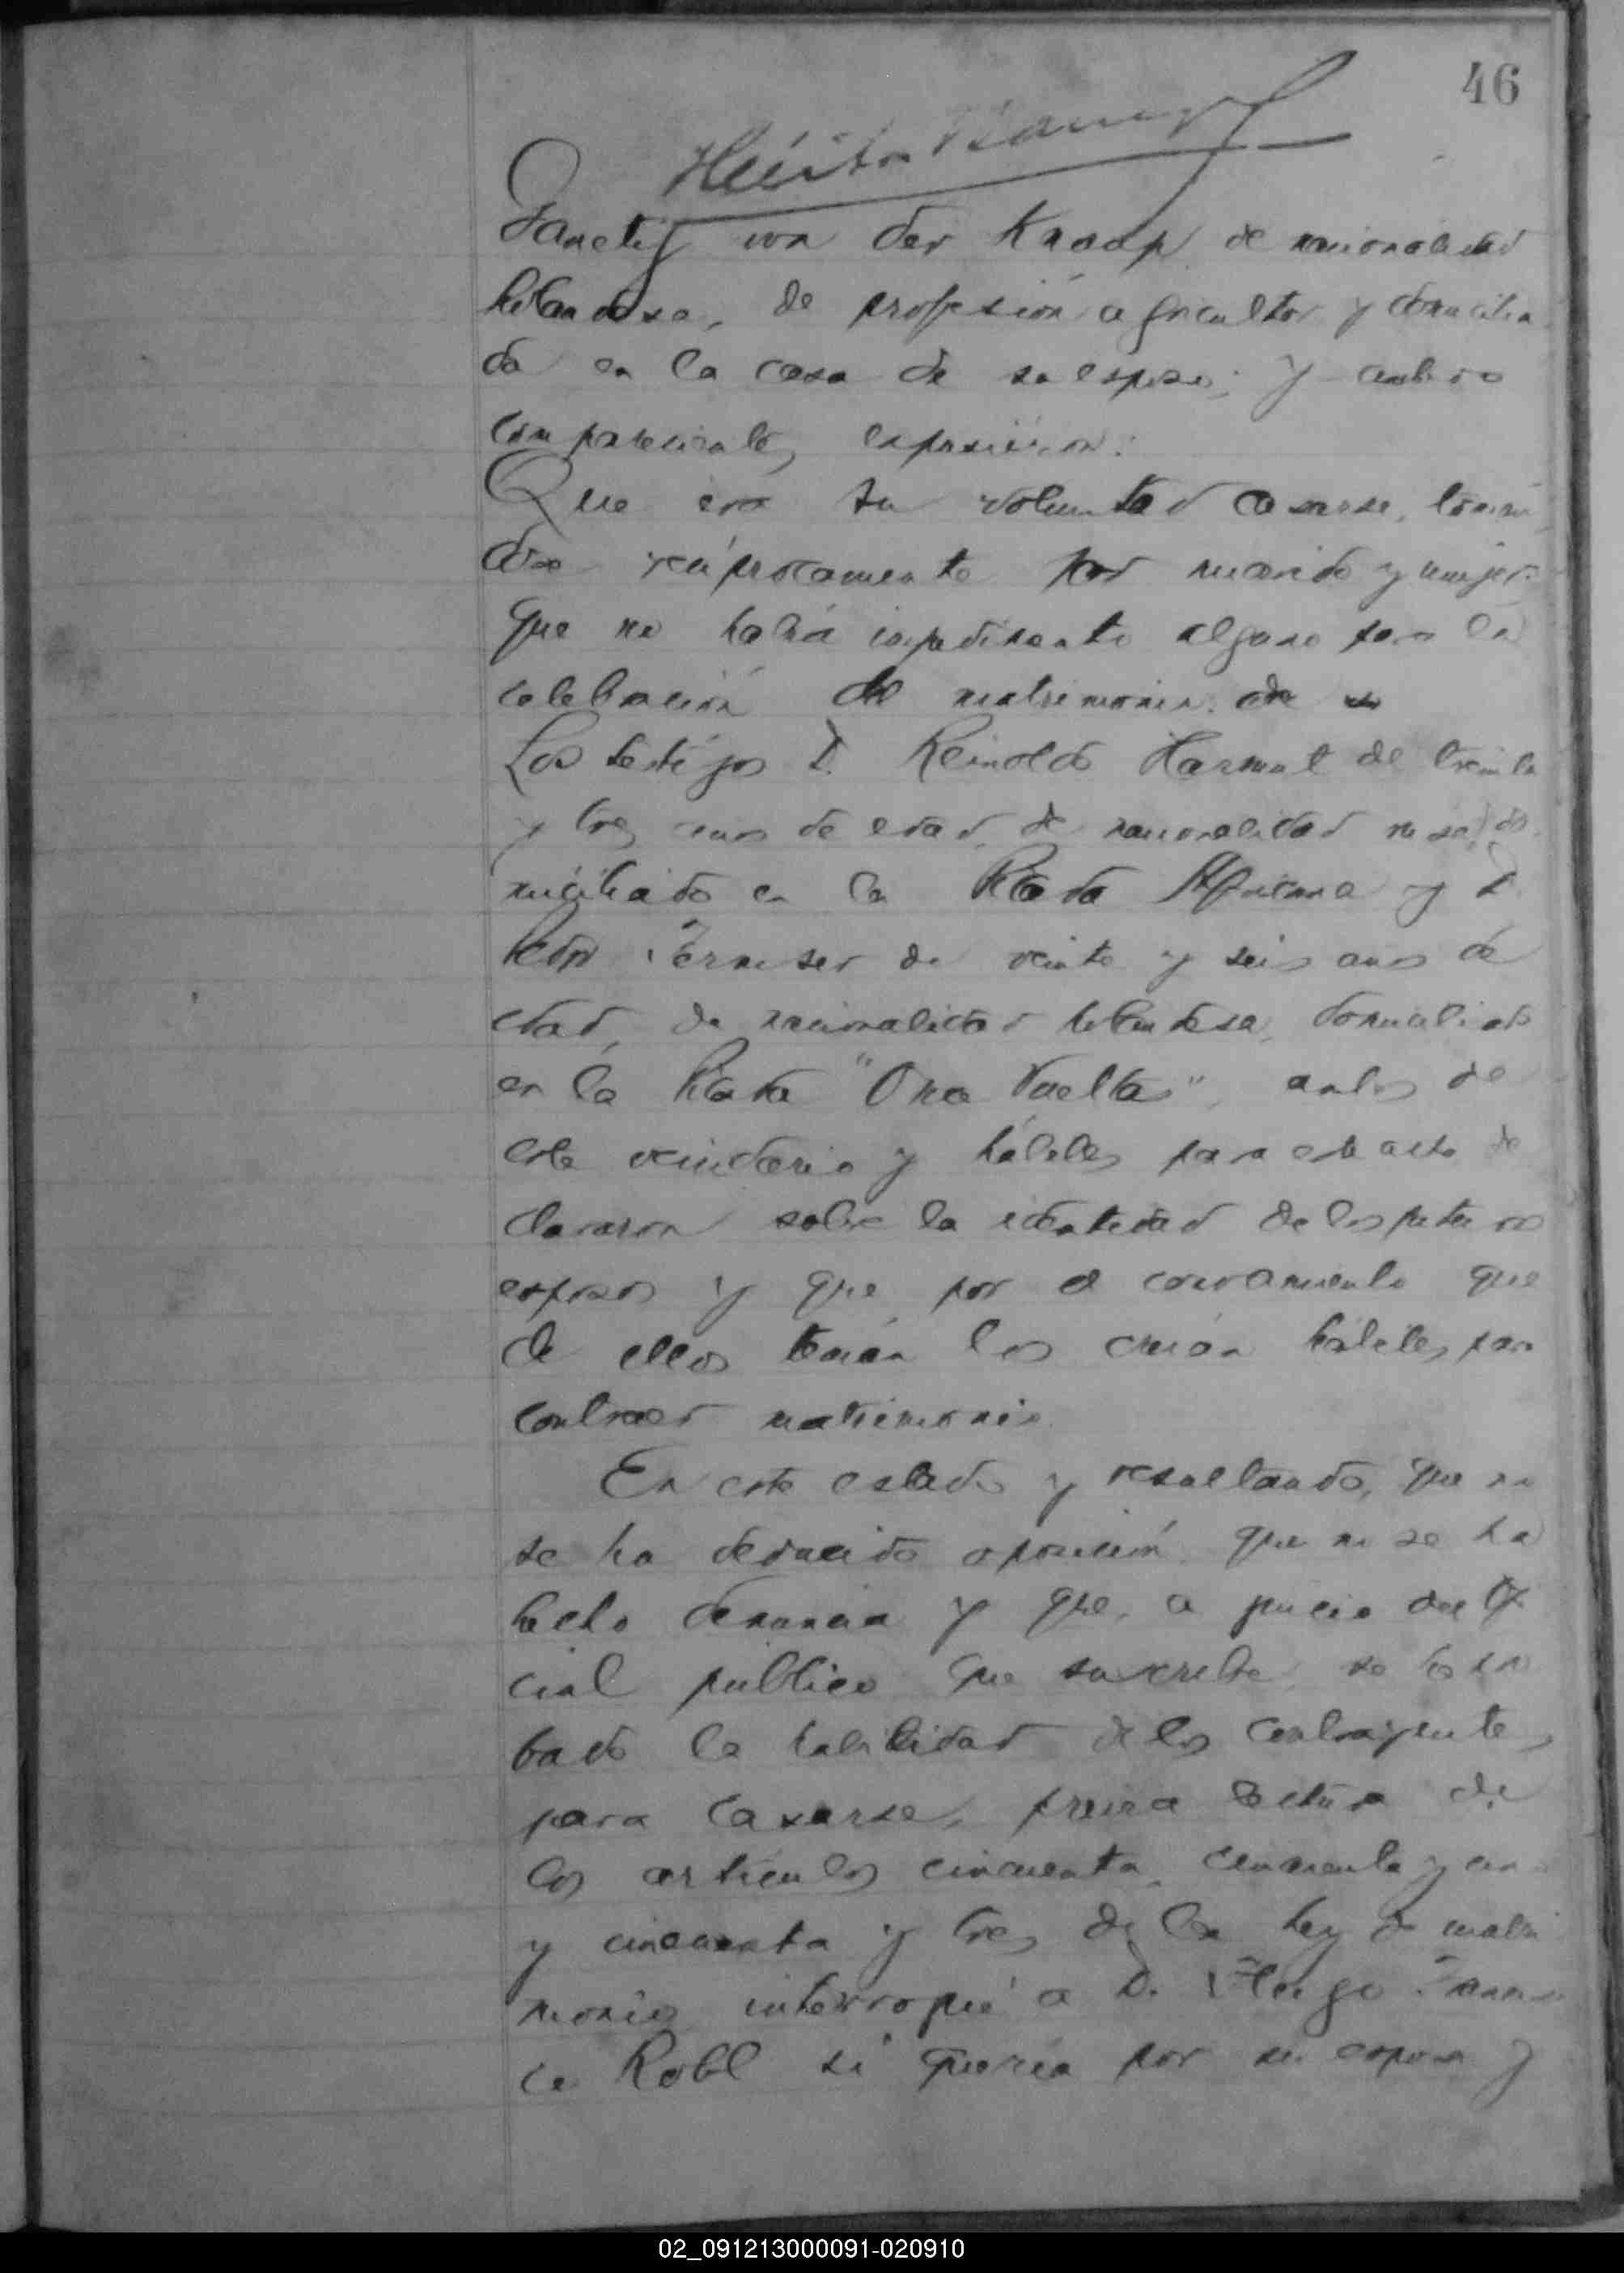 46
Janetij von der Knaap de nacionalidad
holandesa, de profesión agricultor y domicilia
da en la casa de su esposo; y ambos
comparecientes expusieron:
Que era su voluntad casarse, tomán
dose recíprocamente por marido y mujer:
que no había impedimento alguno para la
celebración del matrimonio.
Los testigos D. Reinoldo Harmut de treinta
y tres anos de edad, de nacionalidad rusa, do
miciliado en la y D.
de veinte y seis anos de
edad, de nacionalidad holandesa, domiciliado
en la "Una Vuelta", ambos de
este vecindario y hábiles para este acto de
clararon sobre la identidad de los futuros
esposos y que por el conocimiento que
de ellos tenían los creían hábiles para
contraer matrimonio.
En este estado y resultando, que no
se ha deducido oposición que no se ha
hecho denuncia y que, a juicio del ofi
cial público que suscribe, se ha pro
bado la habilidad de los contrayentes
para casarse, previa lectura de
los artículos cincuenta, cincuenta y uno
y cincuenta y tres de la ley de matri
monio interrogué a D. Hugo
Robl si quería por su esposa y
02_091213000091-020910